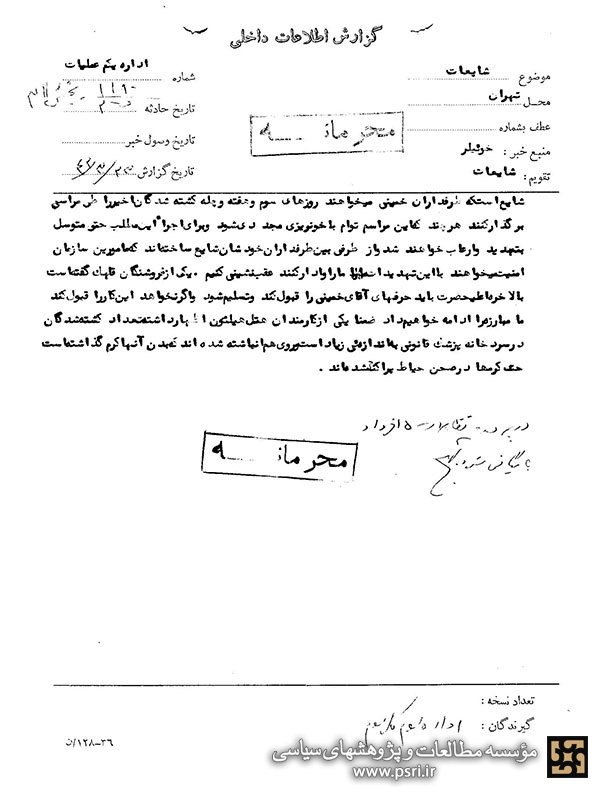 گزارش اطلاعات داخلی
موضوع شایعات
محل تهران
عطف بشماره
منبع خبر: خوئیلر
تقویم: شایعات
اداره یکم عملیات
شماره
تاریخ حادثه
تاریخ وصول خبر
تاریخ گزارش ۴۲/۳/۲۳
محرمانه
شایع است که طرفداران خمینی میخواهند روزهای سوم و هفته و چله کشته شدگان اخیر را طی مراسمی
برگذار کنند هر چند که این مراسم توام با خونریزی مجدد ی شود و برای اجرا این مطلب حتی متوسل
بتهدید وارعاب خواهند شد از طرفی بین طرفداران خود شان شایع ساخته اند که مامورین سازمان
امنیت میخواهند با این تهدیدات ما را وادار کنند عقب نشینی کنیم . یک از فروشندگان گفته است
بالاخره اعلیحضرت باید حرفهای آقای خمینی را قبول کند و تسلیم شود و اگر نخواهد این کار را قبول کند
ما مبارزه را ادامه خواهیم داد ضمنا یکی از کارمندان هتل هیلتون اظهار داشته تعداد کشته شدگان
در سرد خانه پزشک قانونی به اندازه ئی زیاد است بروی هم انباشته شده اند که بدن آنها کرم گذاشته است
حتی کرمها در صحن حیاط پراکنده شده اند .
محرمانه
تعداد نسخه :
گیرندگان : اداره
۳۶-۱۲۸/ن
مؤسسه مطالعات و پژوهشهای سیاسی
www.psri.ir